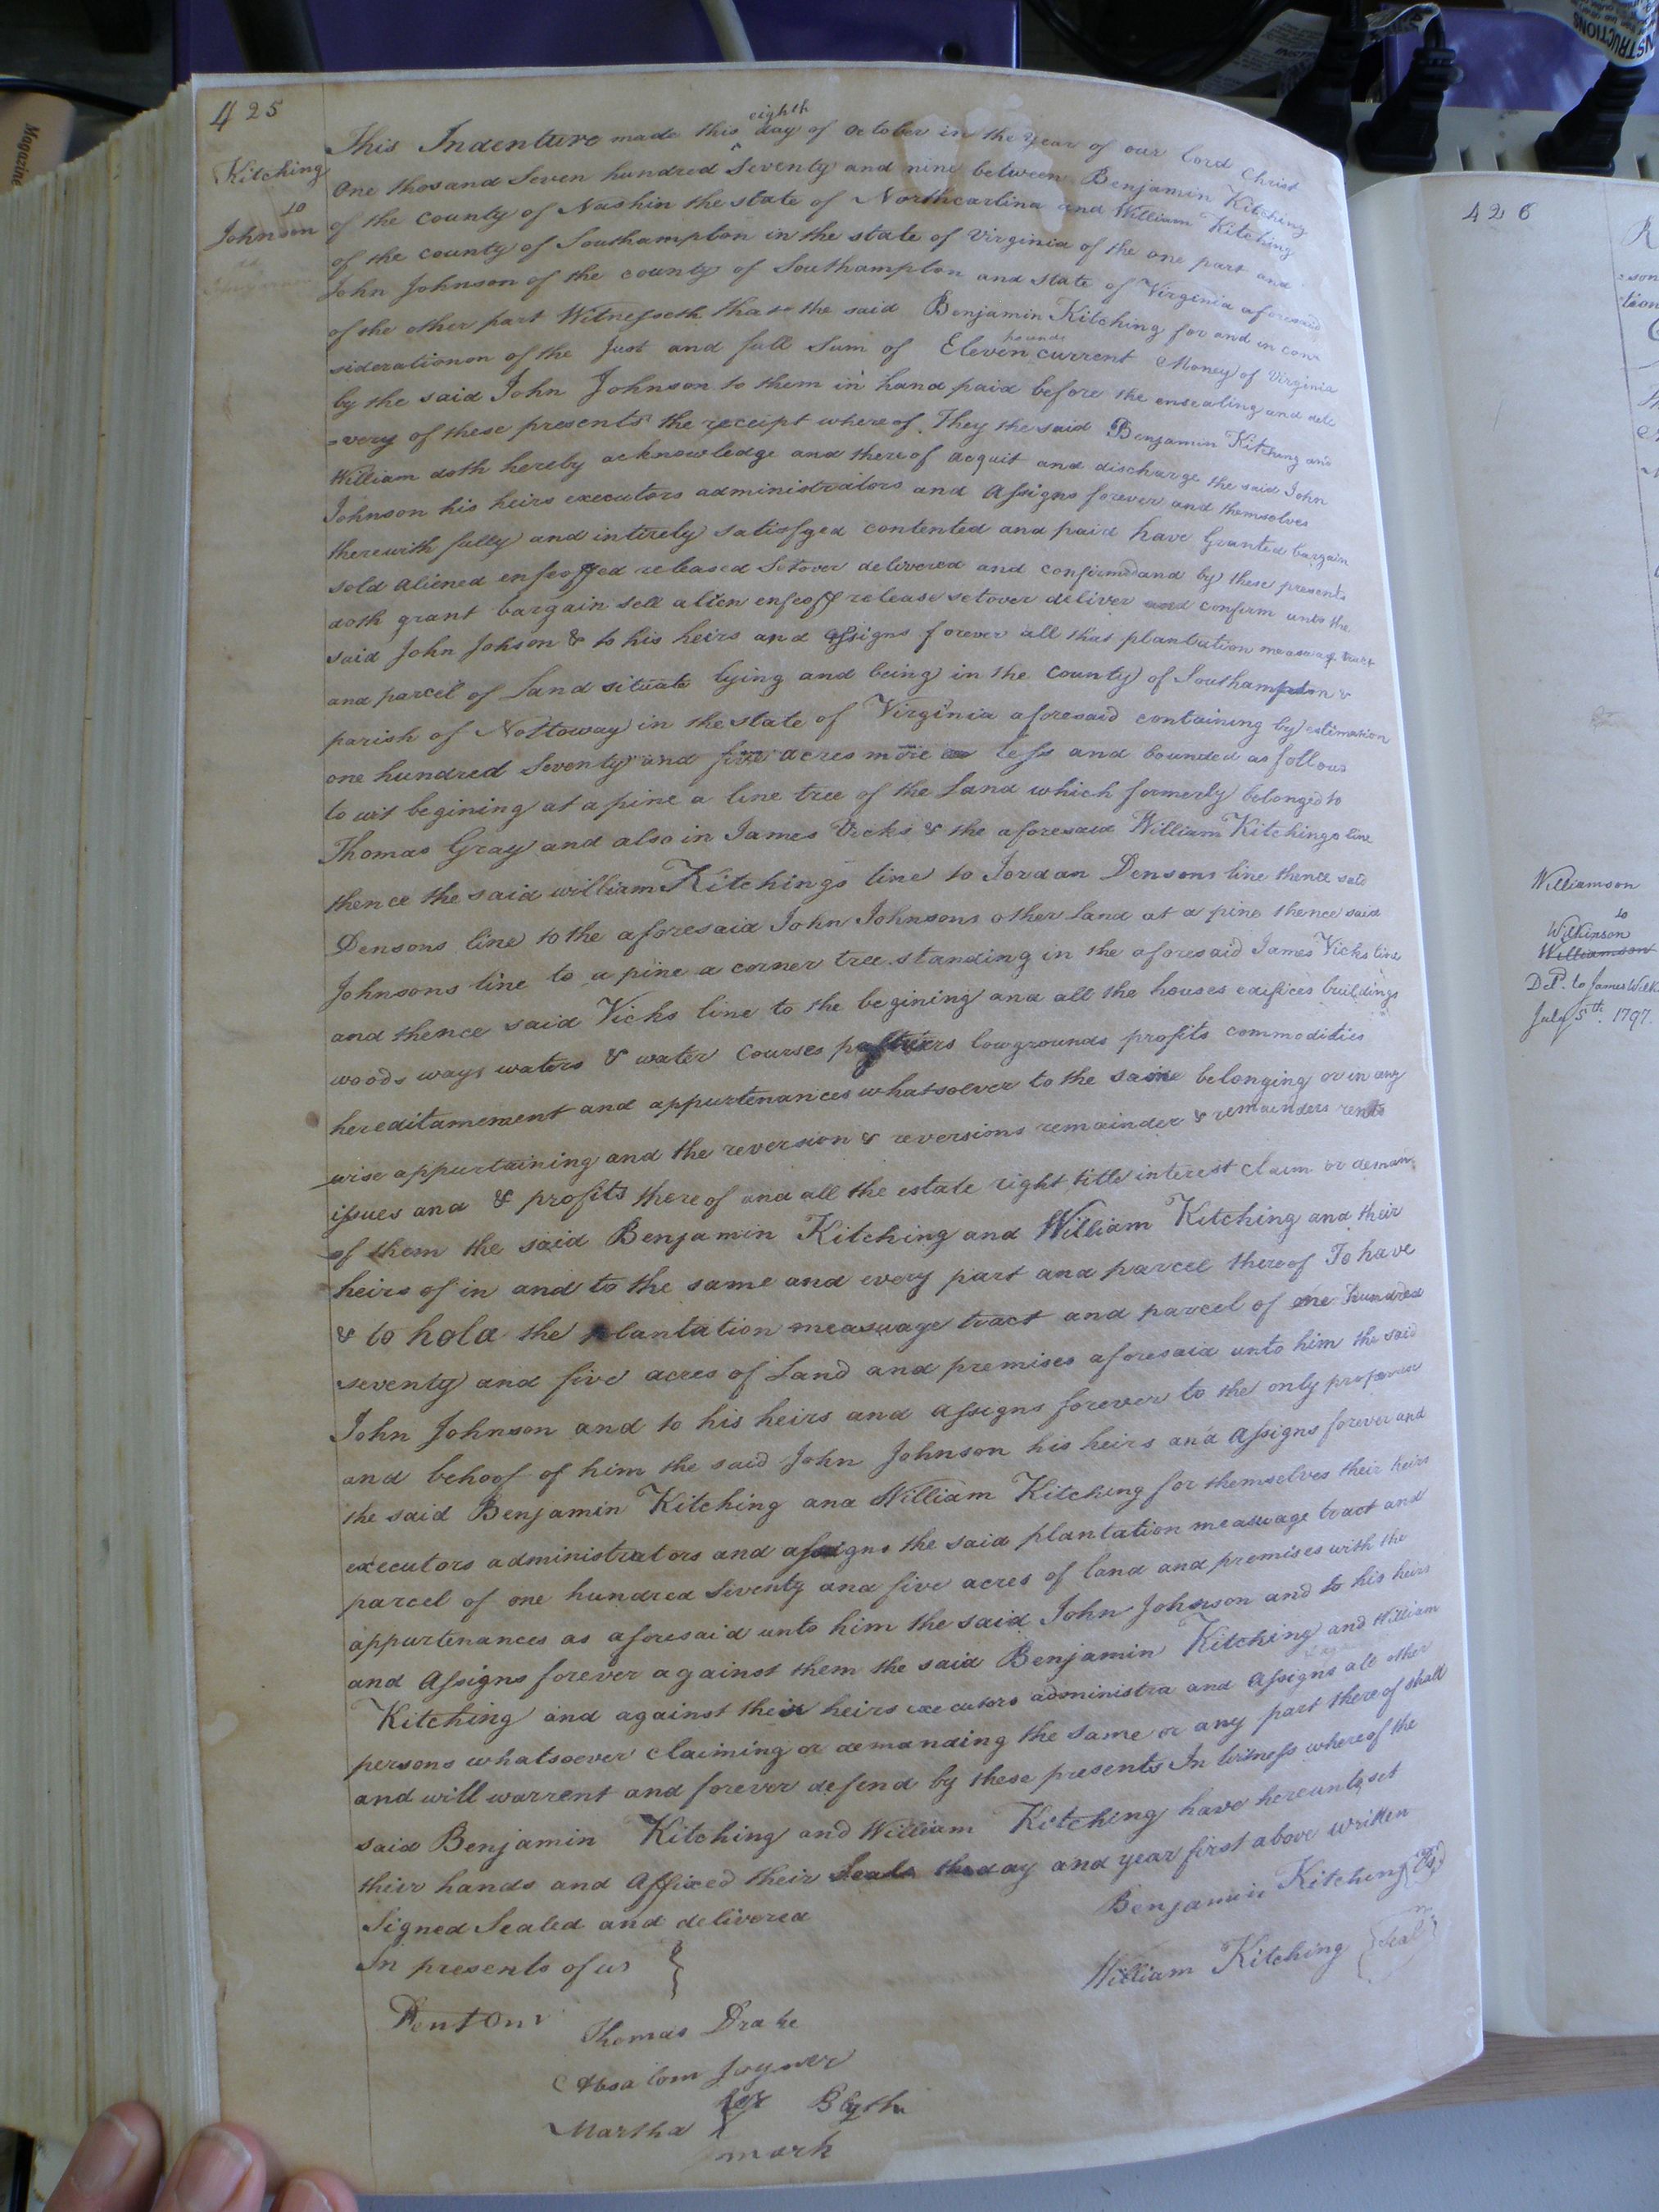 425
Kitching
to
Johnson
This Indenture made this eighth day of October in the year of our Lord Christ
One thosand Seven hundred Seventy and nine between Benjamin Kitching
of the county of Nash in the state of Northcarlina and William Kitching
of the county of Southampton in the state of Virginia of the one part and
John Johnson of the county of Southampton and State of Virginia aforesaid
of the other part Witnesseth that the said Benjamin Kitching for and in con
siderationon of the Just and full Sum of Eleven pounds current Money of Virginia
by the said John Johnson to them in hand paid before the ensealing and deli
very of these presents the receipt whereof They the said Benjamin Kitching and
William doth hereby acknowledge and thereof acquit and discharge the said John
Johnson his heirs executors administrators and Assigns forever and themselves
therewith fully and intirely satisfyed contented and paid have Granted bargain
sold aliened enfeoffed released Setover delivered and confirmed and by these presents
doth grant bargain sell alien enfeoff release setover deliver and confirm unto the
said John Johson & to his heirs and Assigns forever all that plantation measuage tract
and parcel of Land situate lying and being in the County of Southampton &
parish of Nottoway in the state of Virginia aforesaid containing by estimation
one hundred Seventy and five acres more or less and bounded as follows
to wit begining at a pine a line tree of the Land which formerly belonged to
Thomas Gray and also in James Vicks & the aforesaid William Kitchings line
thence the said william Kitchings line to Jordan Densons line thence said
Densons line to the aforesaid John Johnsons other Land at a pine thence said
Johnsons line to a pine a corner tree standing in the aforesaid James Vicks line
and thence said Vicks line to the begining and all the houses edifices buildings
woods ways waters & water Courses lowgrounds profits commodities
hereditamement and appurtenances whatsoever to the same belonging or in any
wise appurtaining and the reversion & reversions remainder & remainders rents
issues and & profits thereof and all the estate right title interest claim or deman
of them the said Benjamin Kitching and William Kitching and their
heirs of in and to the same and every part and parcel thereof To have
& to hold the plantation measuage tract and parcel of one hundred
seventy and five acres of Land and premises aforesaid unto him the said
John Johnson and to his heirs and Assigns forever to the only proper use
and behoof of him the said John Johnson his heirs and Assigns forever and
the said Benjamin Kitching and William Kitching for themselves their heirs
executors administrators and assigns the said plantation measuage tract and
parcel of one hundred Seventy and five acres of land and premises with the
appurtenances as aforesaid unto him the said John Johnson and to his heirs
and Assigns forever against them the said Benjamin Kitching and William
Kitching and against their heirs executors administra and Assigns all other
persons whatsoever claiming or demanding the same or any part thereof shall
and will warrent and forever defend by these presents In witness whereof the
said Benjamin Kitching and William Kitching have hereunto set
their hands and Affixed their Seals the day and year first above written
Signed Sealed and delivered
Benjamin Kitching
In presents of us
William Kitching Seal
Thomas Drake
Absalom Joyner
Martha her Blythe
mark
426
Williamson
to
Wilkinson
Williamson
Deld. to James Wilk
July 5th. 1797.
Magazine
INSTRUCTIONS